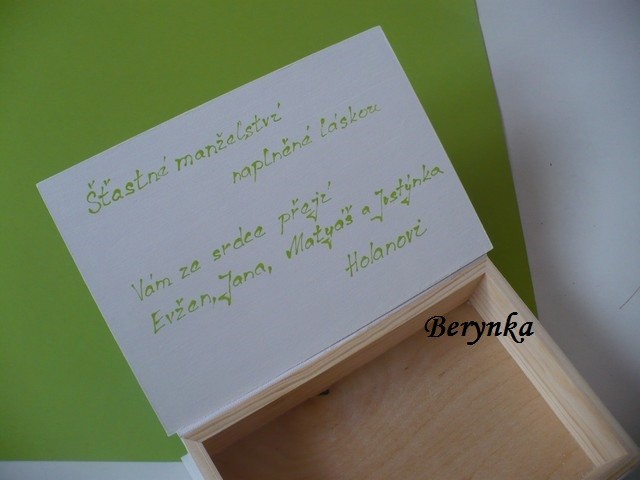 Šťastné manželství
naplněné láskou
Vám ze srdce přejí
Evžen, Jana, Matyáš a Jstýnka
Holanovi
Berynka